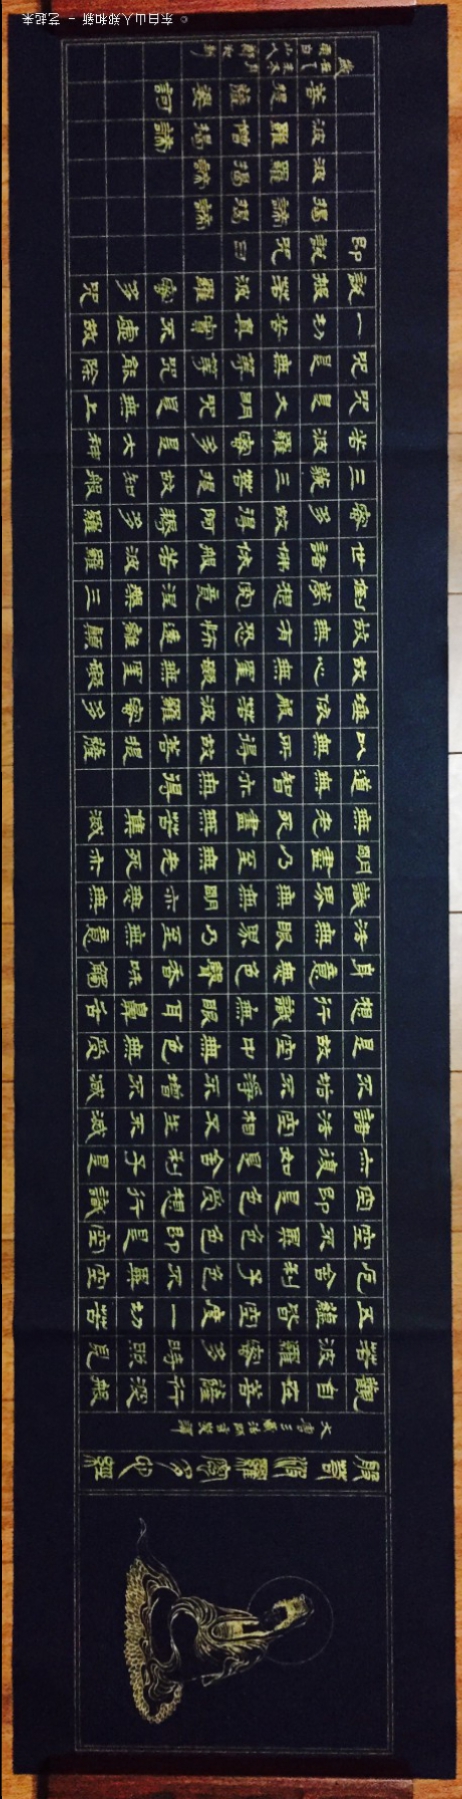 般若波羅蜜多心經
大唐三藏法師玄奘譯
觀自在菩薩行深般
若波羅蜜多時照見
五蘊皆空度一切苦
厄舍利子色不異空
空不異色色即是空
空即是色受想行識
亦復如是舍利子是
諸法空相不生不滅
不垢不淨不增不減
是故空中無色無受
想行識無眼耳鼻舌
身意無色聲香味觸
法無眼界乃至無意
識界無無明亦無無
明盡乃至無老死亦
無老死盡無苦集滅
道無智亦無得
以無所得故菩提薩
埵依般若波羅蜜多
故心無罣礙無罣礙
故無有恐怖遠離顛
倒夢想究竟涅槃三
世諸佛依般若波羅
蜜多故得阿耨多羅
三藐三菩提故知般
若波羅蜜多是大神
咒是大明咒是無上
咒是無等等咒能除
一切苦真實不虛故
說般若波羅蜜多咒
即說咒曰
揭諦揭諦
波羅揭諦
波羅僧揭諦
菩提薩婆訶
东白山人郑和新 - 艺起来